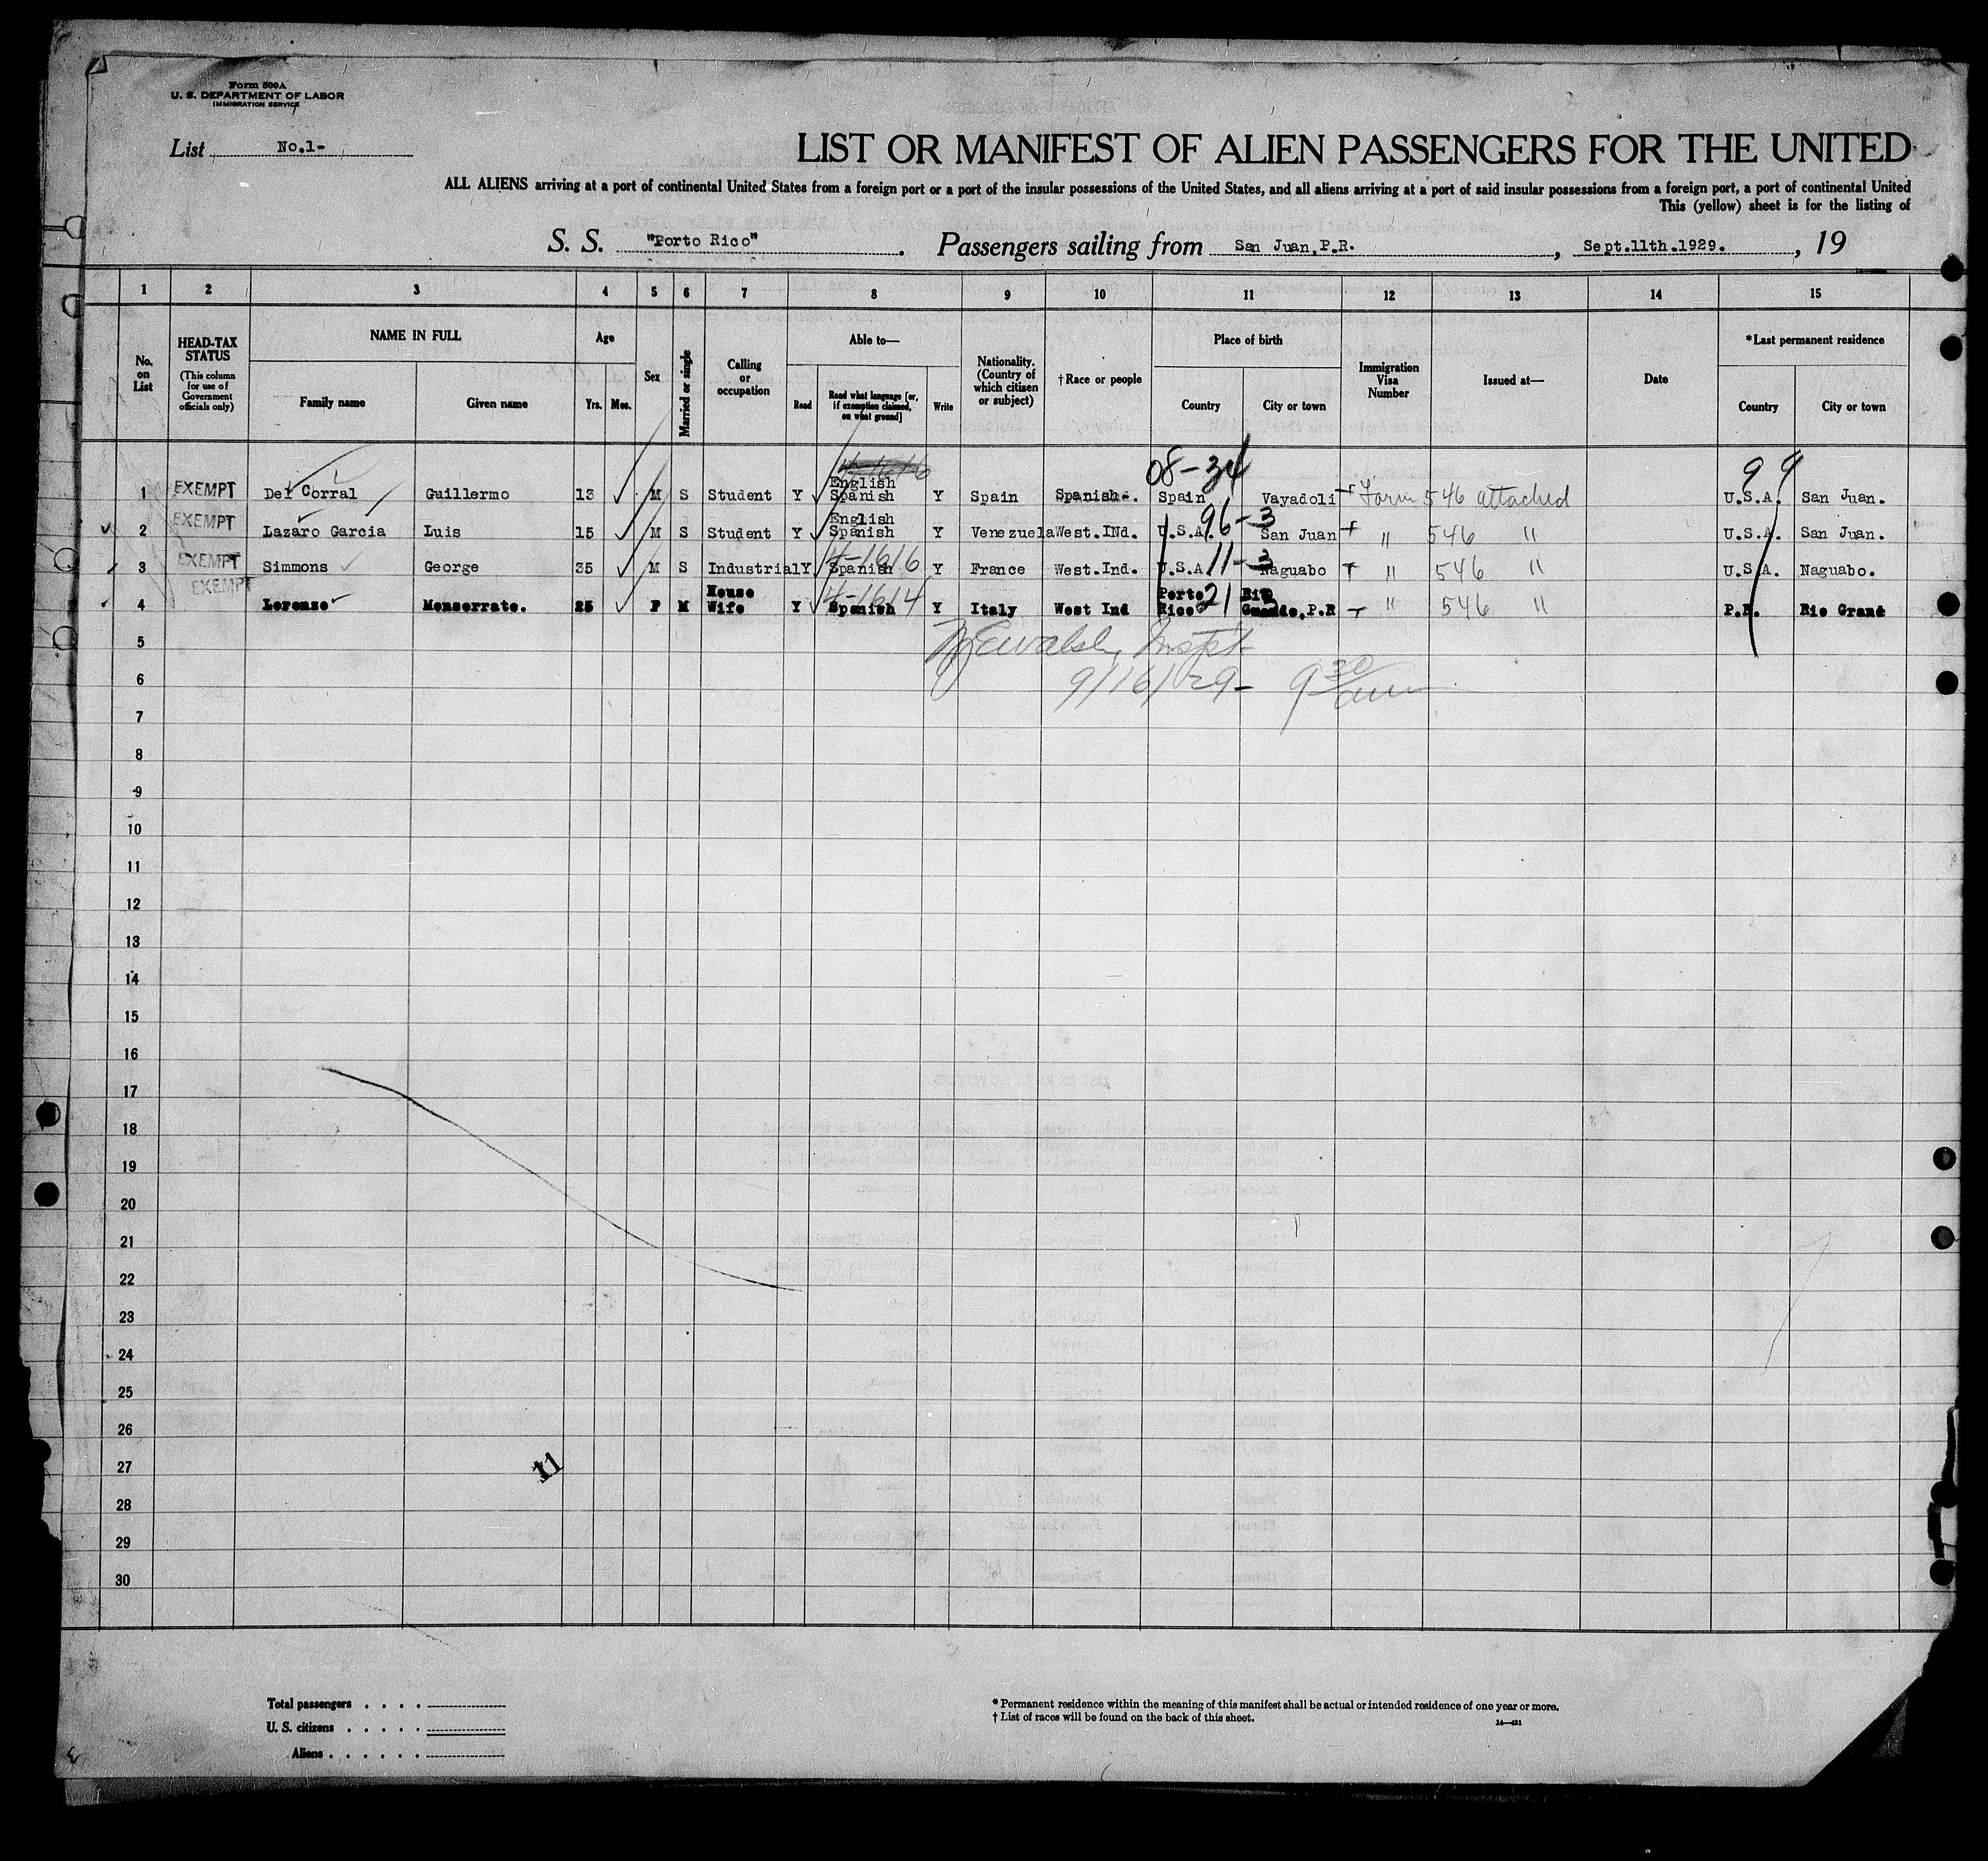 Form 500A
U. S. DEPARTMENT OF LABOR
IMMIGRATION SERVICE
List No.1-
LIST OR MANIFEST OF ALIEN PASSENGERS FOR THE UNITED
ALL ALIENS arriving at a port of continental United States from a foreign port or a port of the insular possessions of the United States, and all aliens arriving at a port of said insular possessions from a foreign port, a port of continental United
This (yellow) sheet is for the listing of
S. S. "Porto Rico". Passengers sailing from San Juan,P.R. , Sept.11th.1929. , 19
1 2 3 4 5 6 7 8 9 10 11 12 13 14 15
No. on List
HEAD-TAX STATUS (This column for use of Government officials only)
NAME IN FULL
Family name Given name
Age
Yrs. Mos.
Sex
Married or single
Calling or occupation
Able to—
Read Read what language [or, if exemption claimed, on what ground] Write
Nationality. (Country of which citizen or subject)
†Race or people
Place of birth
Country City or town
Immigration Visa Number
Issued at—
Date
*Last permanent residence
Country City or town
08-34 99
1 EXEMPT Del Corral Guillermo 13 M S Student Y English Spanish Y Spain Spanish. Spain Vayadoli Form 546 attached U.S.A. San Juan.
96-3
2 EXEMPT Lazaro Garcia Luis 15 M S Student Y English Spanish Y Venezuela West.INd. U.S.A. San Juan " 546 " U.S.A. San Juan.
4-1616 11-3
3 EXEMPT Simmons George 35 M S Industrial Y Spanish Y France West.Ind. U.S.A Naguabo " 546 " U.S.A. Naguabo.
4-1614 21 3
4 EXEMPT Lorenzo Monserrate. 25 F M House Wife Y Spanish Y Italy West Ind Porto Rico Rio Grande,P.R " 546 " P.R. Rio Grand
5
Inspt
6
9/16/29- 9 30 am
7
8
9
10
11
12
13
14
15
16
17
18
19
20
21
22
23
24
25
26
27
11
28
29
30
Total passengers . . . .
U. S. citizens . . . . .
Aliens . . . . . .
* Permanent residence within the meaning of this manifest shall be actual or intended residence of one year or more.
† List of races will be found on the back of this sheet.
14—431